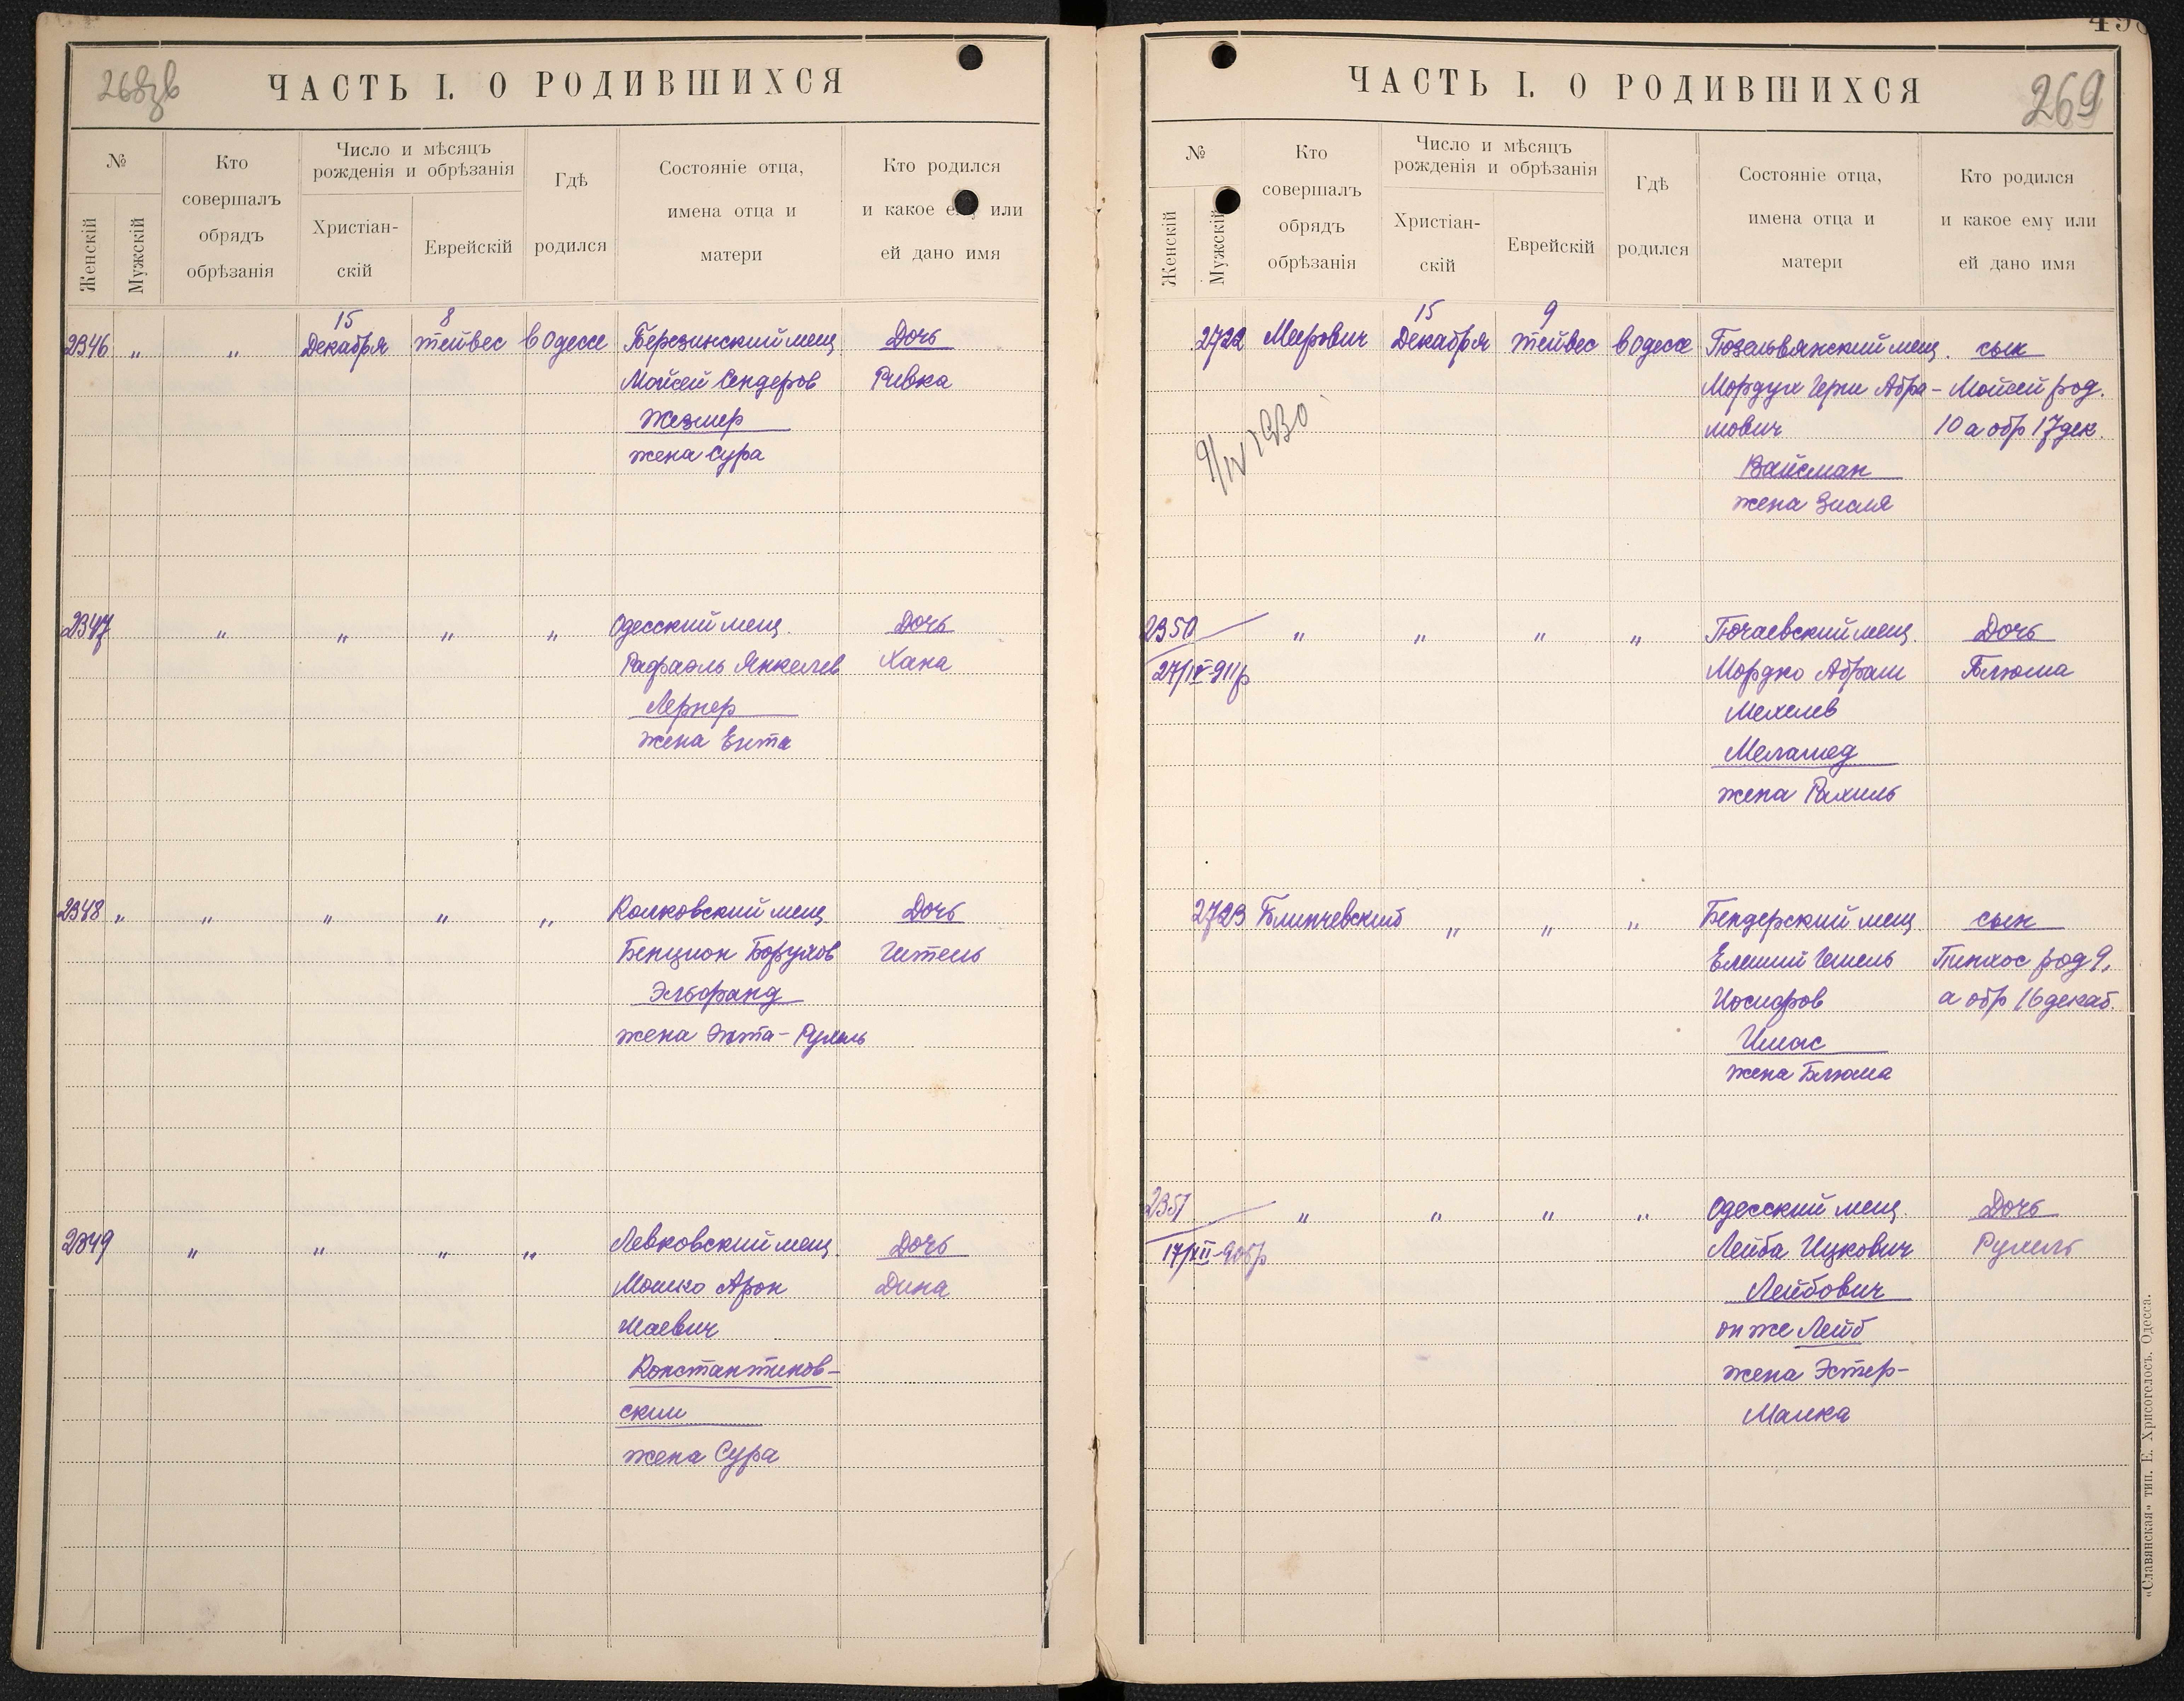 268
ЧАСТЬ I. О РОДИВШИХСЯ
№
Женскій
Мужскій
Кто
совершалъ
обрядъ
обрѣзанія
Число и мѣсяцъ
рожденія и обрѣзанія
Христіан-
скій
Еврейскій
Гдѣ
родился
Состояніе отца,
имена отца и
матери
Кто родился
и какое ему или
ей дано имя
15 8
2346 " " Декабря тейвес в Одессе Березинский мещ Дочь
Мойсей Сендеров Ривка
Жезмер
жена Сура
2347 " " " " Одесский мещ. Дочь
Рафаэль Янкелев Хана
Лернер
жена Ента
2348 " " " " " Колковский мещ Дочь
Бенцион Борухов Гитель
Эльфранд
жена Энта-Рухель
2349 " " " " Левковский мещ. Дочь
Мошко Арон Дина
Константинов-
ский
жена Сура
ЧАСТЬ I. О РОДИВШИХСЯ
269
№
Женскій
Мужскій
Кто
совершалъ
обрядъ
обрѣзанія
Число и мѣсяцъ
рожденія и обрѣзанія
Христіан-
скій
Еврейскій
Гдѣ
родился
Состояніе отца,
имена отца и
матери
Кто родился
и какое ему или
ей дано имя
15 9
2722 Меерович Декабря тейвес в Одессе мещ. сын
Мордух Герш Абра- Мойсей род.
мович 10 а обр 17 дек.
9/IV 1930
Вайсман
жена Зисля
2350 " " " " мещ. Дочь
27/IV-911 р Мордко Абрам Блюма
Мехелев
Меламед
жена Рахиль
2723 Блинчевский " " " Бендерский мещ. сын
Гешель Пинхос род 9,
Иосифов а обр 16 декаб.
Имас
жена Блюма
2351 " " " " Одесский мещ. Дочь
17/XII Лейба Ицкович Рухель
Лейбович
он же Лейб
жена Эстер-
Малка
«Славянская» тип. Е. Хрисогелосъ. Одесса.